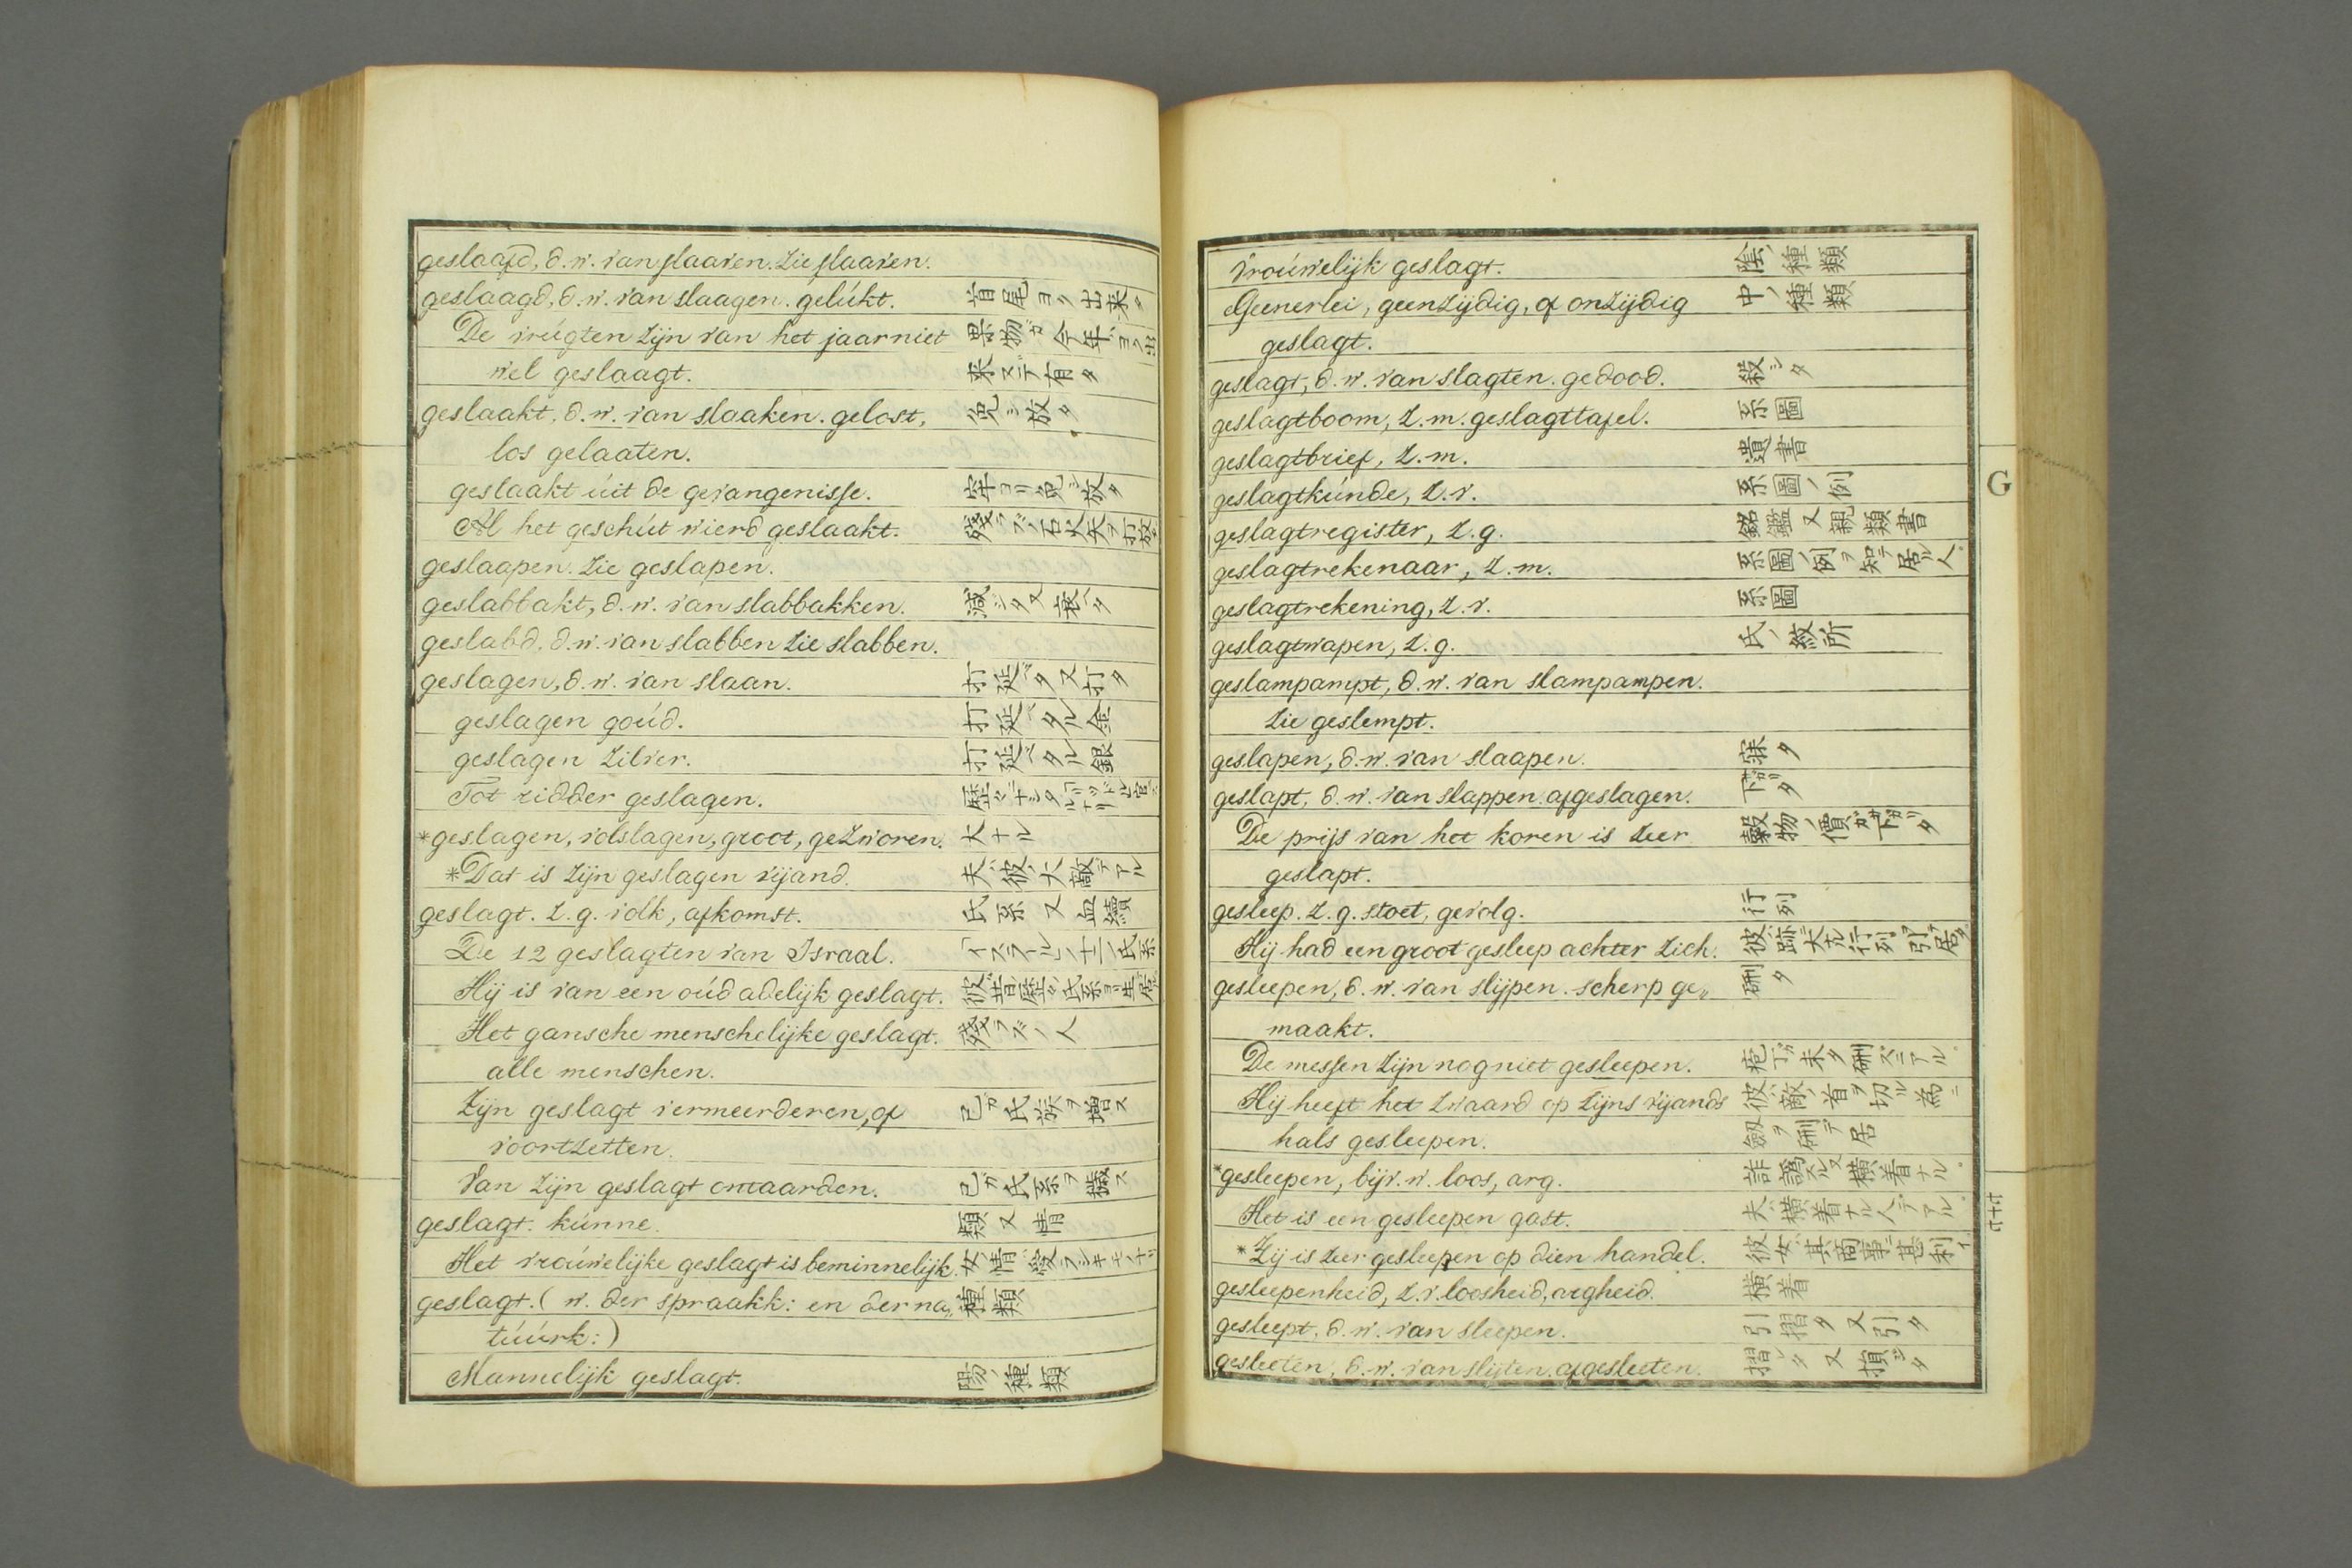 geslaafd, d.w. van slaaven. Zie slaaven.
geslaagd, d.w. van slaagen. gelúkt. 首尾ヨク出来タ
De vrúgten zijn van het jaar niet 果物ガ今年ヨク出
wel geslaagt. 来ズニ有タ
geslaakt, d.w. van slaaken. gelost, 免シ放タ
los gelaaten.
geslaakt úit de gevangenisse. 牢ヨリ免シ放タ
Al het geschút wierd geslaakt. 殘ラズノ石火矢ヲ打放
geslaapen. Zie geslapen.
geslabbakt, d.w. van slabbakken. 減シタ又衰ヘタ
geslabd, d.w. van slabben Zie slabben.
geslagen, d.w. van slaan. 打延ベタ又打タ
geslagen goúd. 打延ベタル金
geslagen zilver. 打延ベタル銀
Tot ridder geslagen.
*geslagen, volslagen, groot, gezworen. 大ナル
*Dat is zijn geslagen vijand. 夫ハ彼ノ大敵デアル
geslagt. z.g. volk, afkomst. 氏系又血續
De 12 geslagten van Israal. イスラールノ十二ノ氏系
Hij is van een oúd adelijk geslagt.
Het gansche menschelijke geslagt. 殘ラズノ人
alle menschen.
Zijn geslagt vermeerderen, of 己ガ氏族ヲ増ス
voortzetten.
Van zijn geslagt ontaarden. 己ガ氏系ヲ
geslagt. kúnne. 類又情
Het vroúwelijke geslagt is beminnelijk.
geslagt. (w. der spraakk: en der na„ 種類
túúrk:)
Mannelijk geslagt. 陽ノ種類
Vroúwelijk geslagt. 陰ノ種類
Geenerlei, geenzijdig, of onzijdig 中ノ種類
geslagt.
geslagt, d.w. van slagten. gedood. 殺シタ
geslagtboom, z.m. geslagttafel. 系圖
geslagtbrief, z.m. 遺書
geslagtkúnde, z.v. 系圖ノ例
geslagtregister, z.g. 銘鑑又親類書
geslagtrekenaar, z.m. 系圖ノ例ヲ知テ居ル人
geslagtrekening, z.v. 系圖
geslagtwapen, z.g. 氏ノ紋所
geslampampt, d.w. van slampampen.
Zie geslempt.
geslapen, d.w. van slaapen. 寐タ
geslapt, d.w. van slappen. afgeslagen. 下リタ
De prijs van het koren is zeer 穀物ノ價ガ下リタ
geslapt.
gesleep. z.g. stoet, gevolg. 行列
Hij had een groot gesleep achter zich.
gesleepen, d.w. van slijpen. scherp ge„ 研タ
maakt.
De messen zijn nog niet gesleepen. 庖丁ガ未タ研ズニアル
Hij heeft het zwaard op zijns vijands 彼ハ敵ノ首ヲ切ル為ニ
hals gesleepen. 劔ヲ研テ居
*gesleepen, bijv.w. loos, arg. 詐譌スル又横着ナル
Het is een gesleepen gast. 夫ハ横着ナル人デアル
*Zij is zeer gesleepen op dien handel. 彼女ハ其商事ニ甚利イ
gesleepenheid, z.v. loosheid, argheid. 横着
gesleept, d.w. van sleepen. 引摺タ又引タ
gesleeten, d.w. van slijten. afgesleeten. 摺レタ又損シタ
G